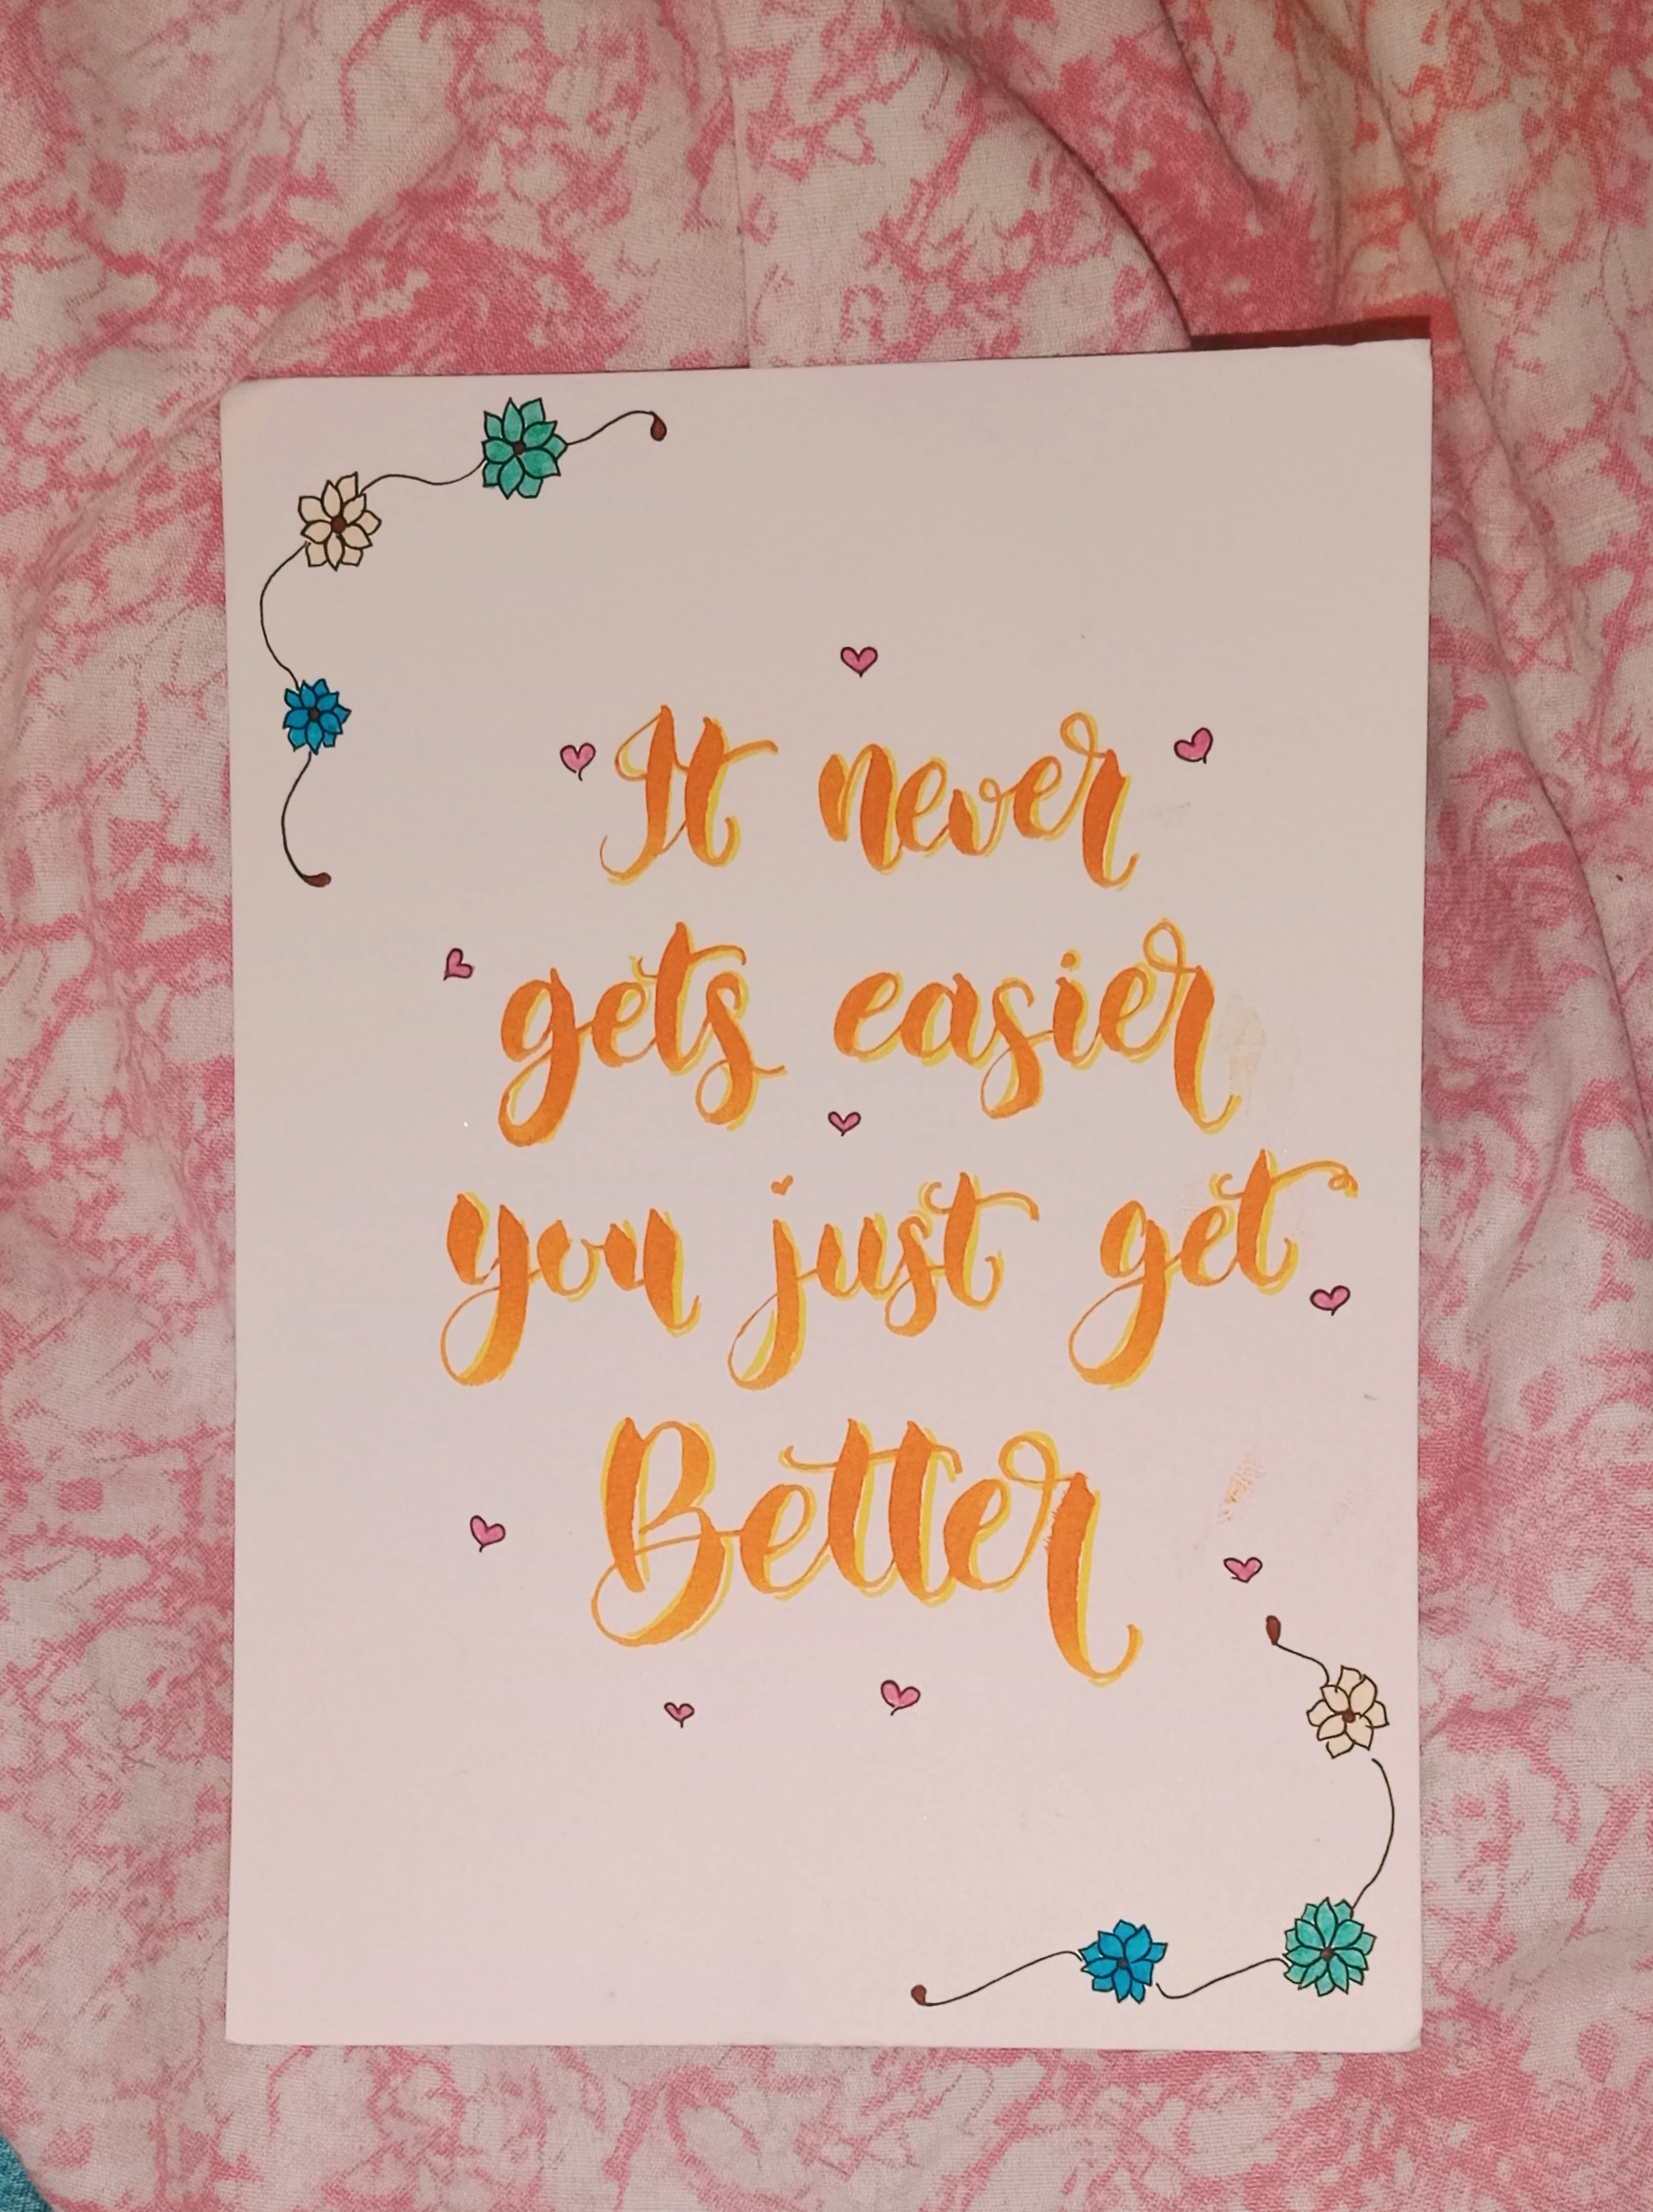 It never
gets easier
you just get
Better